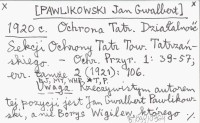 [PAWLIKOWSKI Jan Gwalbert]
1920 c. Ochrona Tatr. Działalność
Sekcji Ochrony Tatr Tow. Tatrzań-
skiego. - Ochr. Przyr. 1: 39-57,
err. tamże 2 (1921): 106.
Uwaga Rzeczywistym autorem
tej pozycji jest Jan Gwalbert Pawlikow-
ski, a nie Borys Wigilew, którego